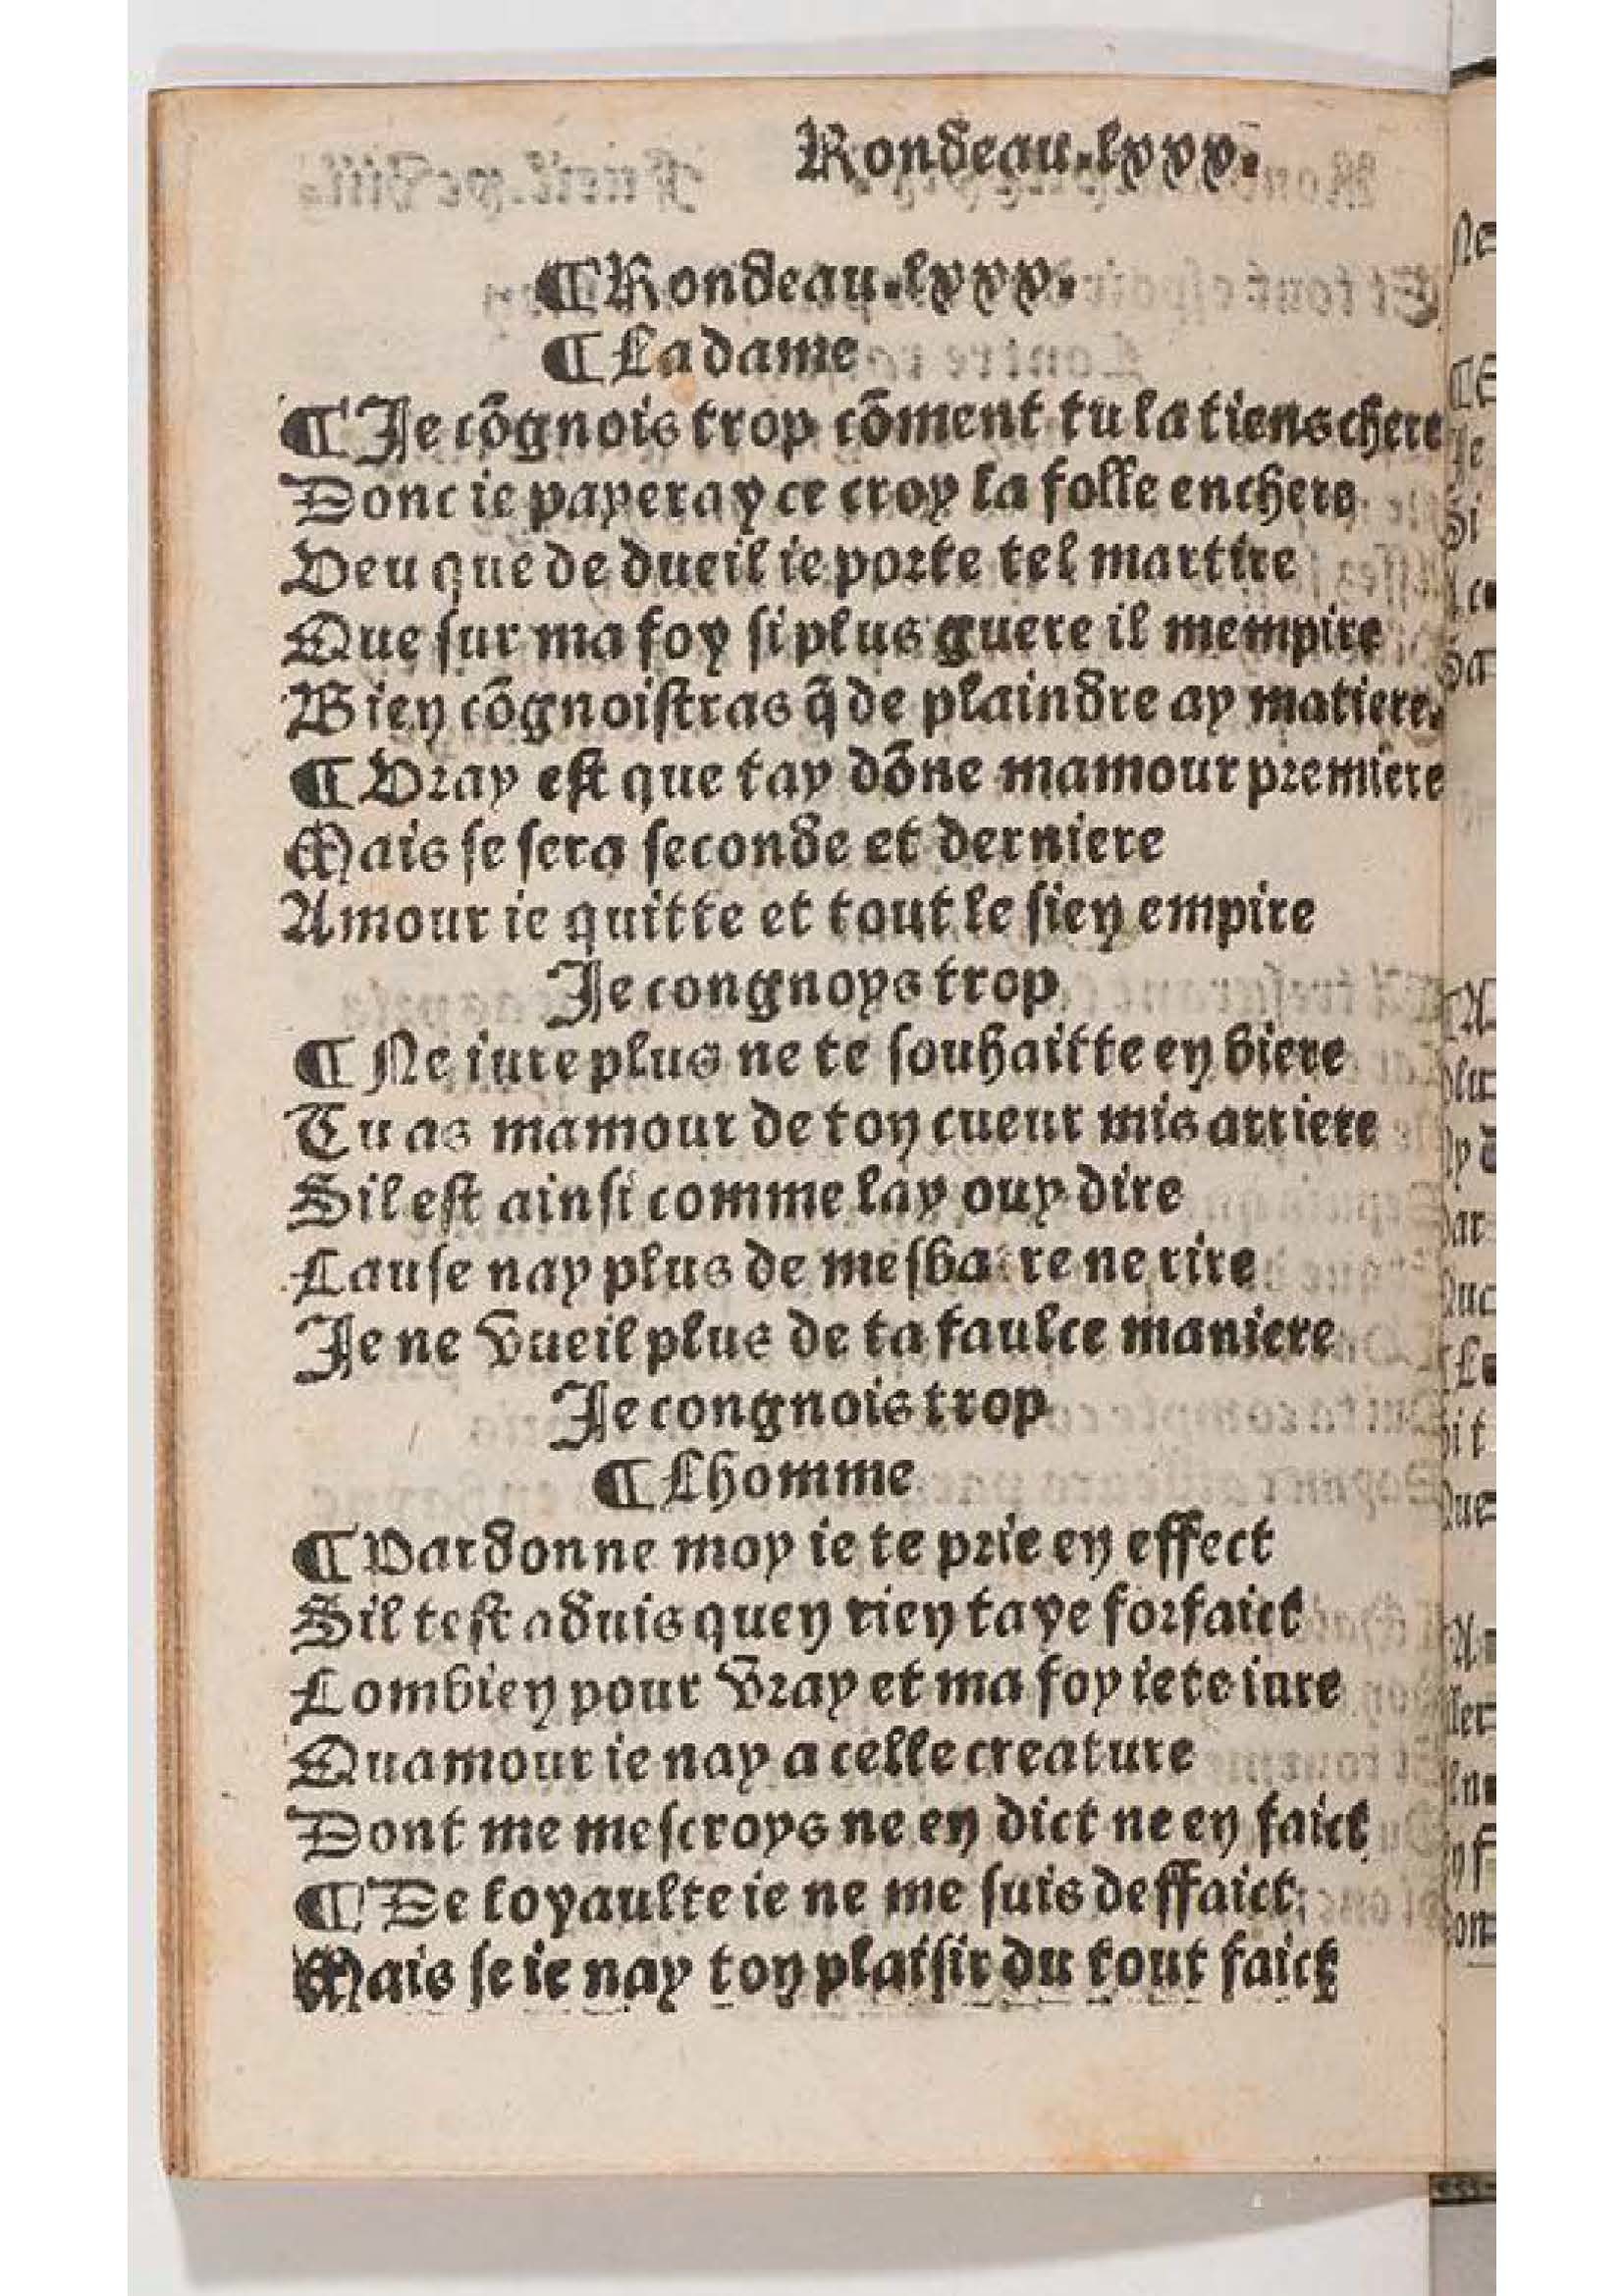 Rondeau.lxxx.
¶Rondeau.lxxx.
¶La dame
¶Je cõgnois trop cõment tu la tiens chere
Donc ie payeray ce croy la folle enchere
Veu que de dueil ie porte tel martire
Que sur ma foy si plus guere il mempire
Bien cõgnoistras q̃ de plaindre ay matiere.
¶Vray est que tay dõne mamour premiere
Mais se sera seconde et derniere
Amour ie quitte et tout le sien empire
Je congnoys trop
¶Ne iure plus ne te souhaitte en biere
Tu as mamour de ton cueur mis arriere
Sil est ainsi comme lay ouy dire
Cause nay plus de mesbatre ne rire
Je ne vueil plus de ta faulce maniere
Je congnois trop
¶Lhomme
¶Pardonne moy ie te prie en effect
Sil test aduis quen rien taye forfaict
Combien pour vray et ma foy ie te iure
Quamour ie nay a celle creature
Dont me mescroys ne en dict ne en faict
¶De loyaulte ie ne me suis deffaict
Mais se ie nay ton plaisir du tout faict